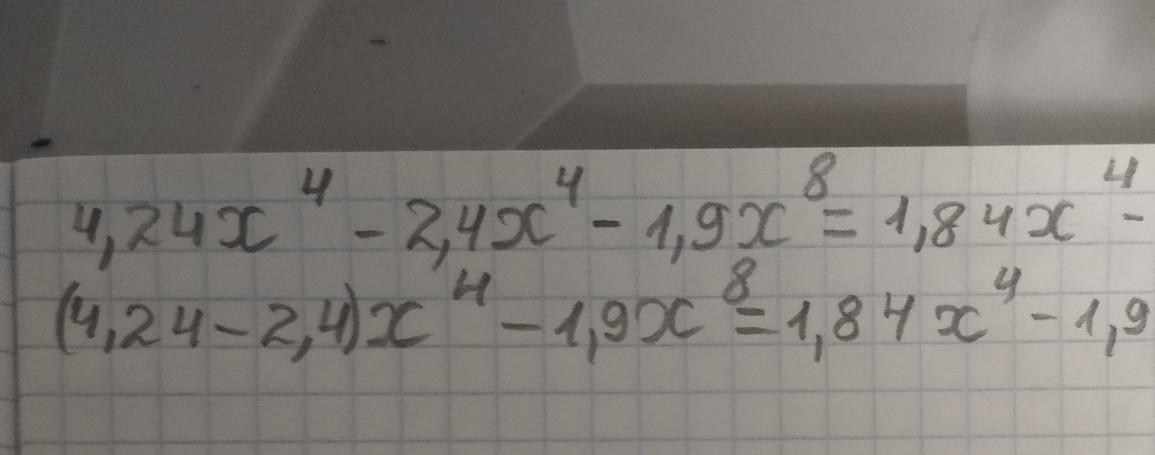 4,24x⁴ - 2,4x⁴ - 1,9x⁸ = 1,84x⁴ -
(4,24 - 2,4)x⁴ - 1,9x⁸ = 1,84x⁴ - 1,9